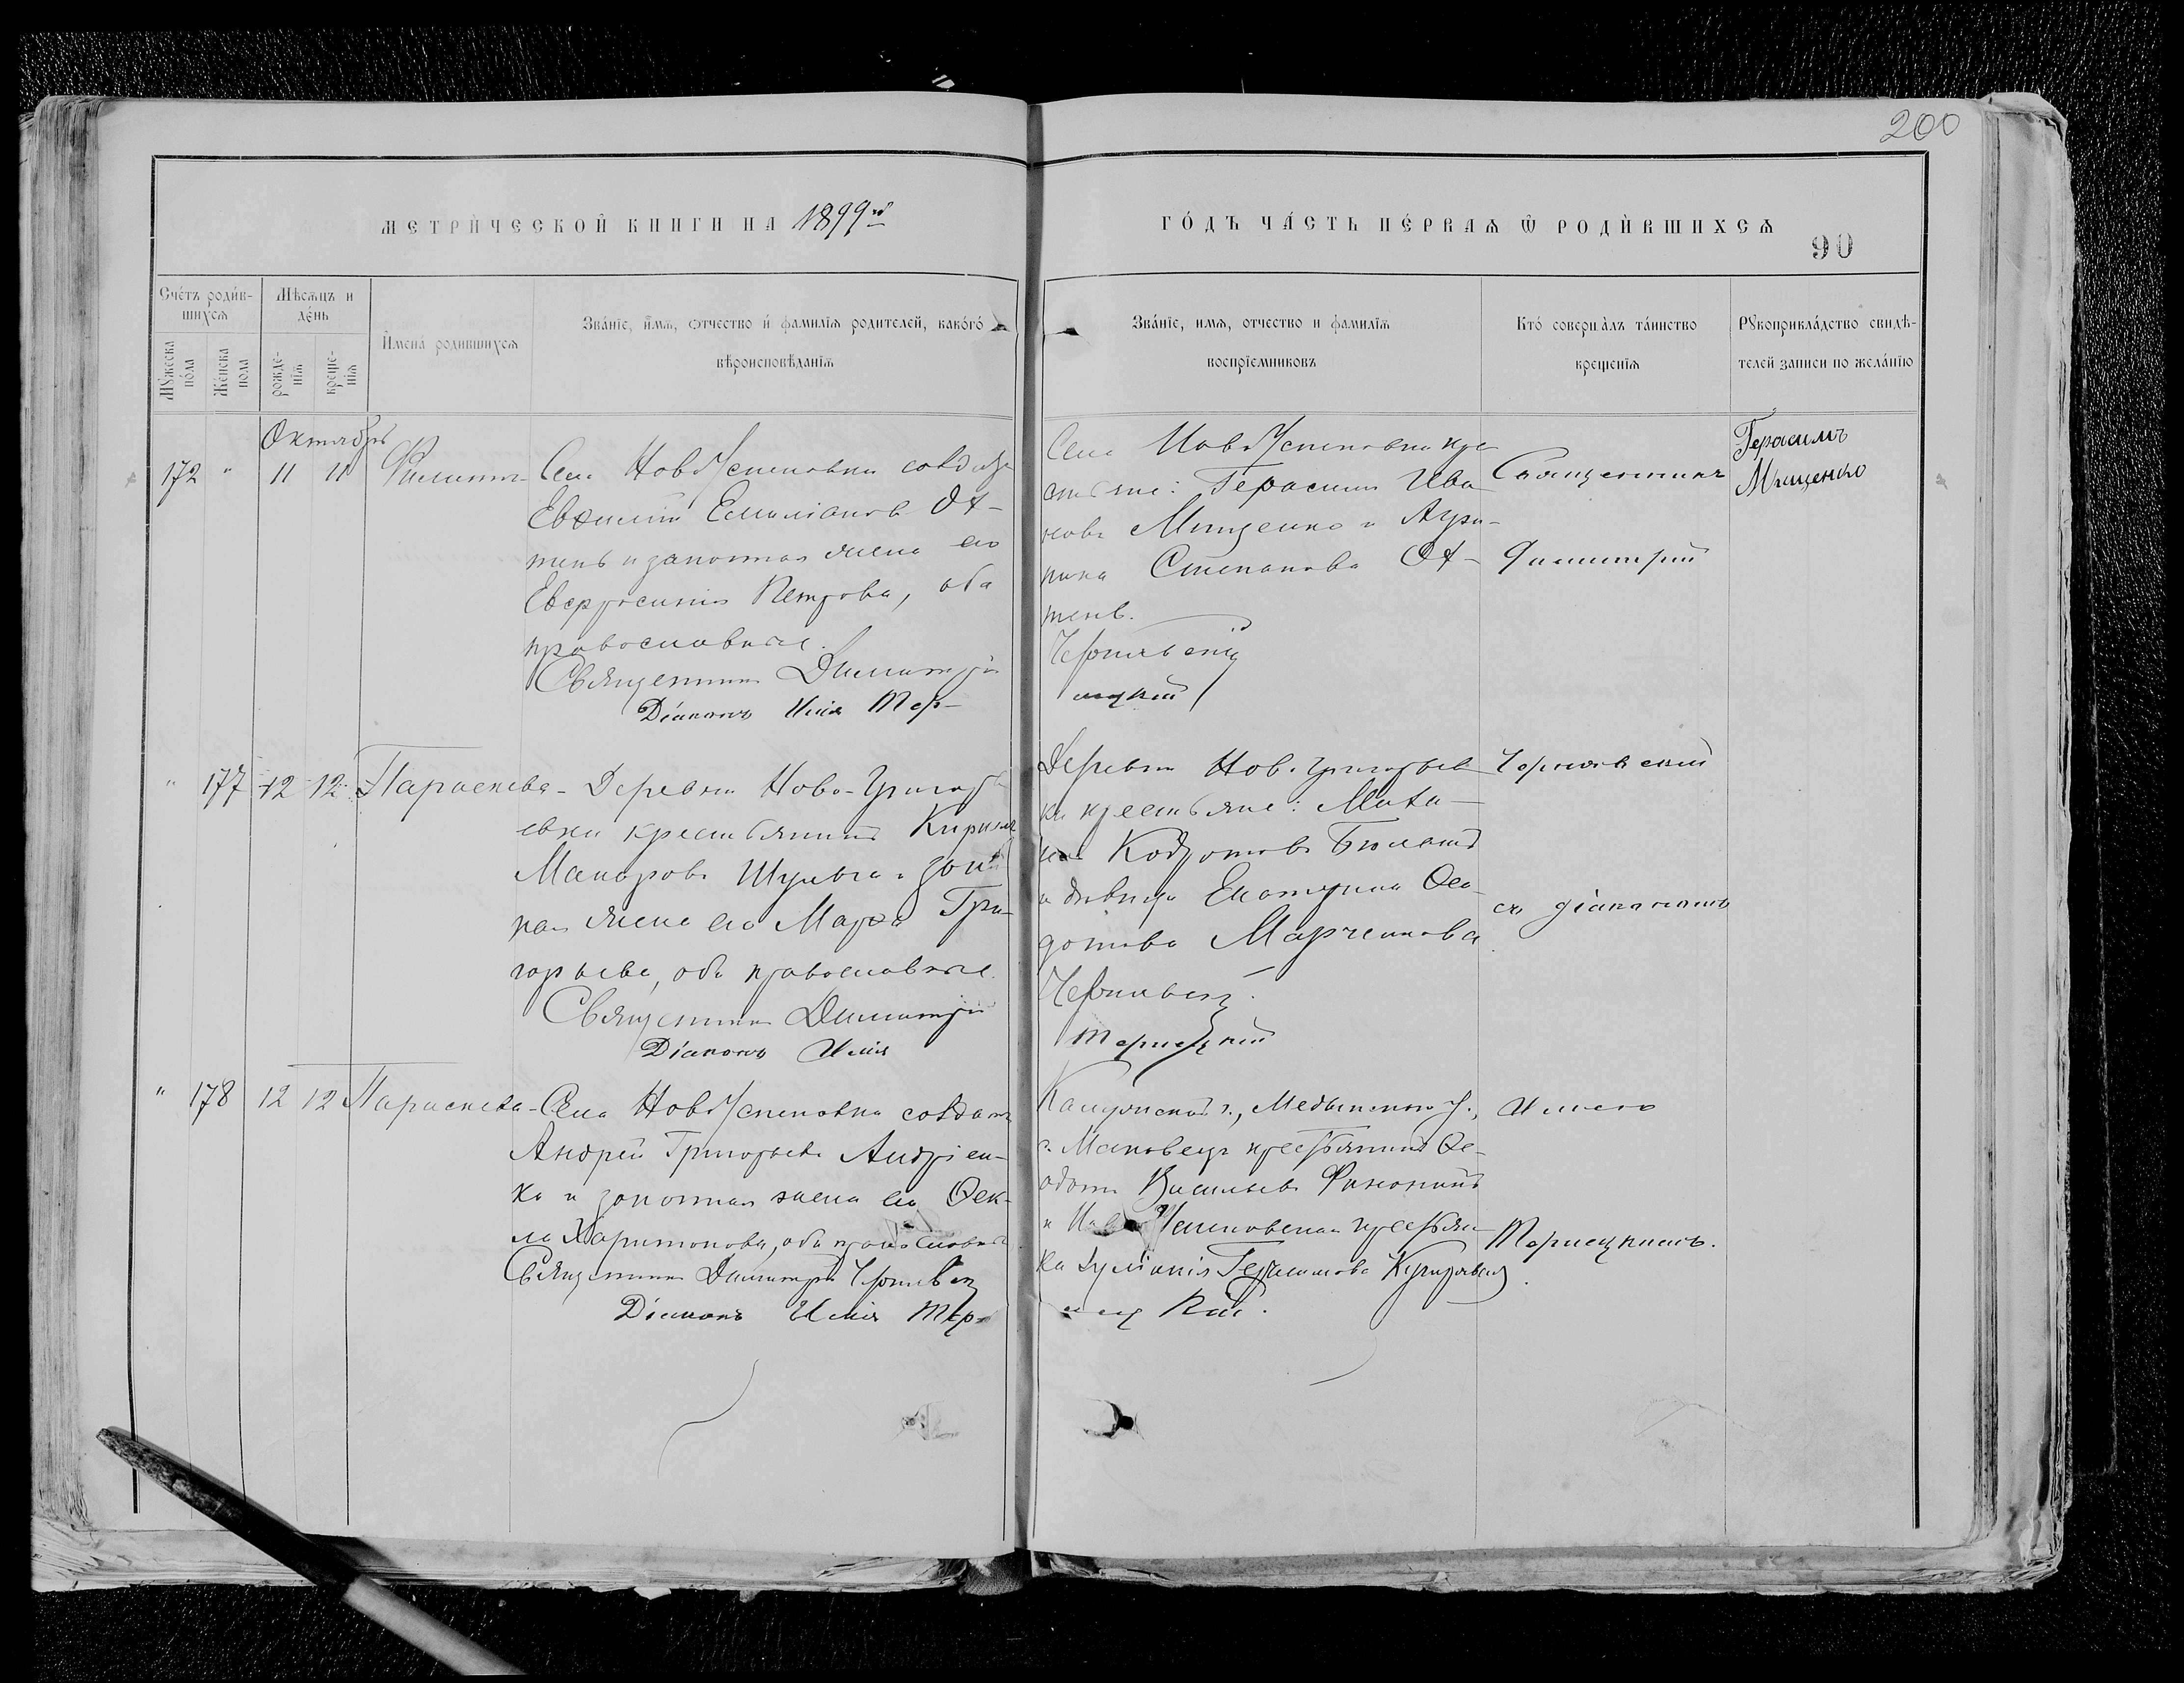 200
МЕТРИ́ЧЕСКОЙ КНИГИ НА 1899й
ГО́ДЪ ЧА́СТЬ ПЕ́РВАѦ Ѡ РОДИ́ВШИХСѦ
90
Сче́тъ роди́в-
шихсѧ
Мꙋжеска
по́ла
Же́нска
пола
Мѣсѧцъ и
де́нь
рожде-
нїѧ
креще-
нїѧ
Имена̀ родившихсѧ
Зва́нїе, и́мѧ, ѻтчество и́ фамилїѧ родителей, како́гѡ
вѣроисповѣданїѧ
Зва́нїе, имѧ, отчество и фамилїѧ
воспрїемниковъ
Кто́ соверша̀лъ та́инство
крещенїѧ
Рꙋкоприкла́дство свидѣ-
телей записи по жела́нїю
Октябрь
172 " 11 11 Филиппъ
Села НовоУспеновки солдатъ
Евѳимій Емиліановъ Ох-
тень и законная жена его
Евфросинія Петрова, оба
православные.
Священникъ Димитрій
Діаконъ Илія Тер-
Села НовоУспеновки кре
стьяне: Герасимъ Ива
новъ Мищенко и Агри-
пина Степанова Ох-
тень.
Чернявскій
лецкій
Священникъ
Димитрій
Герасимъ
Мищенко
" 177 12 12 Параскева
Деревни Ново-Григорь
евки крестьянинъ Кириллъ
Макаровъ Шульга и закон
ная жена его Марѳа Гри-
горьева, оба православные.
Священникъ Димитрій
Діаконъ Илія
Деревни Ново-Григорьев
ки крестьяне:
Кодратовъ
и дѣвица Екатерина Ѳео-
дотова Марченкова
Чернявскій.
Терлецкій
Чернявскій
съ діакономъ
" 178 12 12 Параскева
Села НовоУспеновки солдатъ
Андрей Григорьевъ Андріен-
ко и законная жена его Ѳек-
ла Харитонова, оба православные
Священникъ Димитрій Чернявскій
Діаконъ Илія Тер-
Калужской г., Медынского у.,
с. Маковецъ крестьянинъ Ѳе-
одотъ Васильевъ
и НовоУспеновская крестьян
ка Іуліанія Герасимова
лецкій.
Иліею
Терлецкимъ.